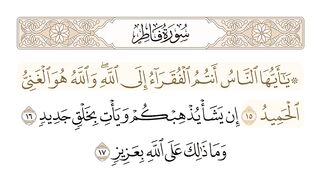 سُورَةُ فَاطِرٍ
۞ يَـٰٓأَيُّهَا ٱلنَّاسُ أَنتُمُ ٱلْفُقَرَآءُ إِلَى ٱللَّهِۖ وَٱللَّهُ هُوَ ٱلْغَنِىُّ
ٱلْحَمِيدُ ١٥ إِن يَشَأْ يُذْهِبْكُمْ وَيَأْتِ بِخَلْقٍ جَدِيدٍ ١٦
وَمَا ذَٰلِكَ عَلَى ٱللَّهِ بِعَزِيزٍ ١٧